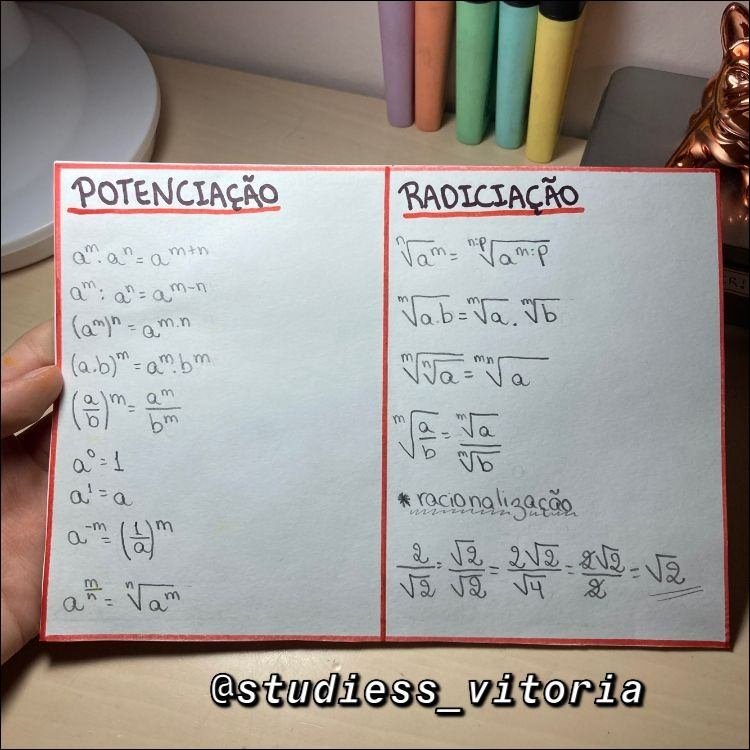 POTENCIAÇÃO
aᵐ . aⁿ = aᵐ⁺ⁿ
aᵐ : aⁿ = aᵐ⁻ⁿ
(aᵐ)ⁿ = aᵐ·ⁿ
(a.b)ᵐ = aᵐ.bᵐ
(a/b)ᵐ = aᵐ/bᵐ
a⁰ = 1
a¹ = a
a⁻ᵐ = (1/a)ᵐ
a^(m/n) = ⁿ√aᵐ
RADICIAÇÃO
ⁿ√aᵐ = ⁿ:ᵖ√aᵐ:ᵖ
ᵐ√a.b = ᵐ√a . ᵐ√b
ᵐ√ⁿ√a = ᵐⁿ√a
ᵐ√(a/b) = ᵐ√a/ᵐ√b
* racionalização
2/√2 : √2/√2 = 2√2/√4 = 2√2/2 = √2
@studiess_vitoria